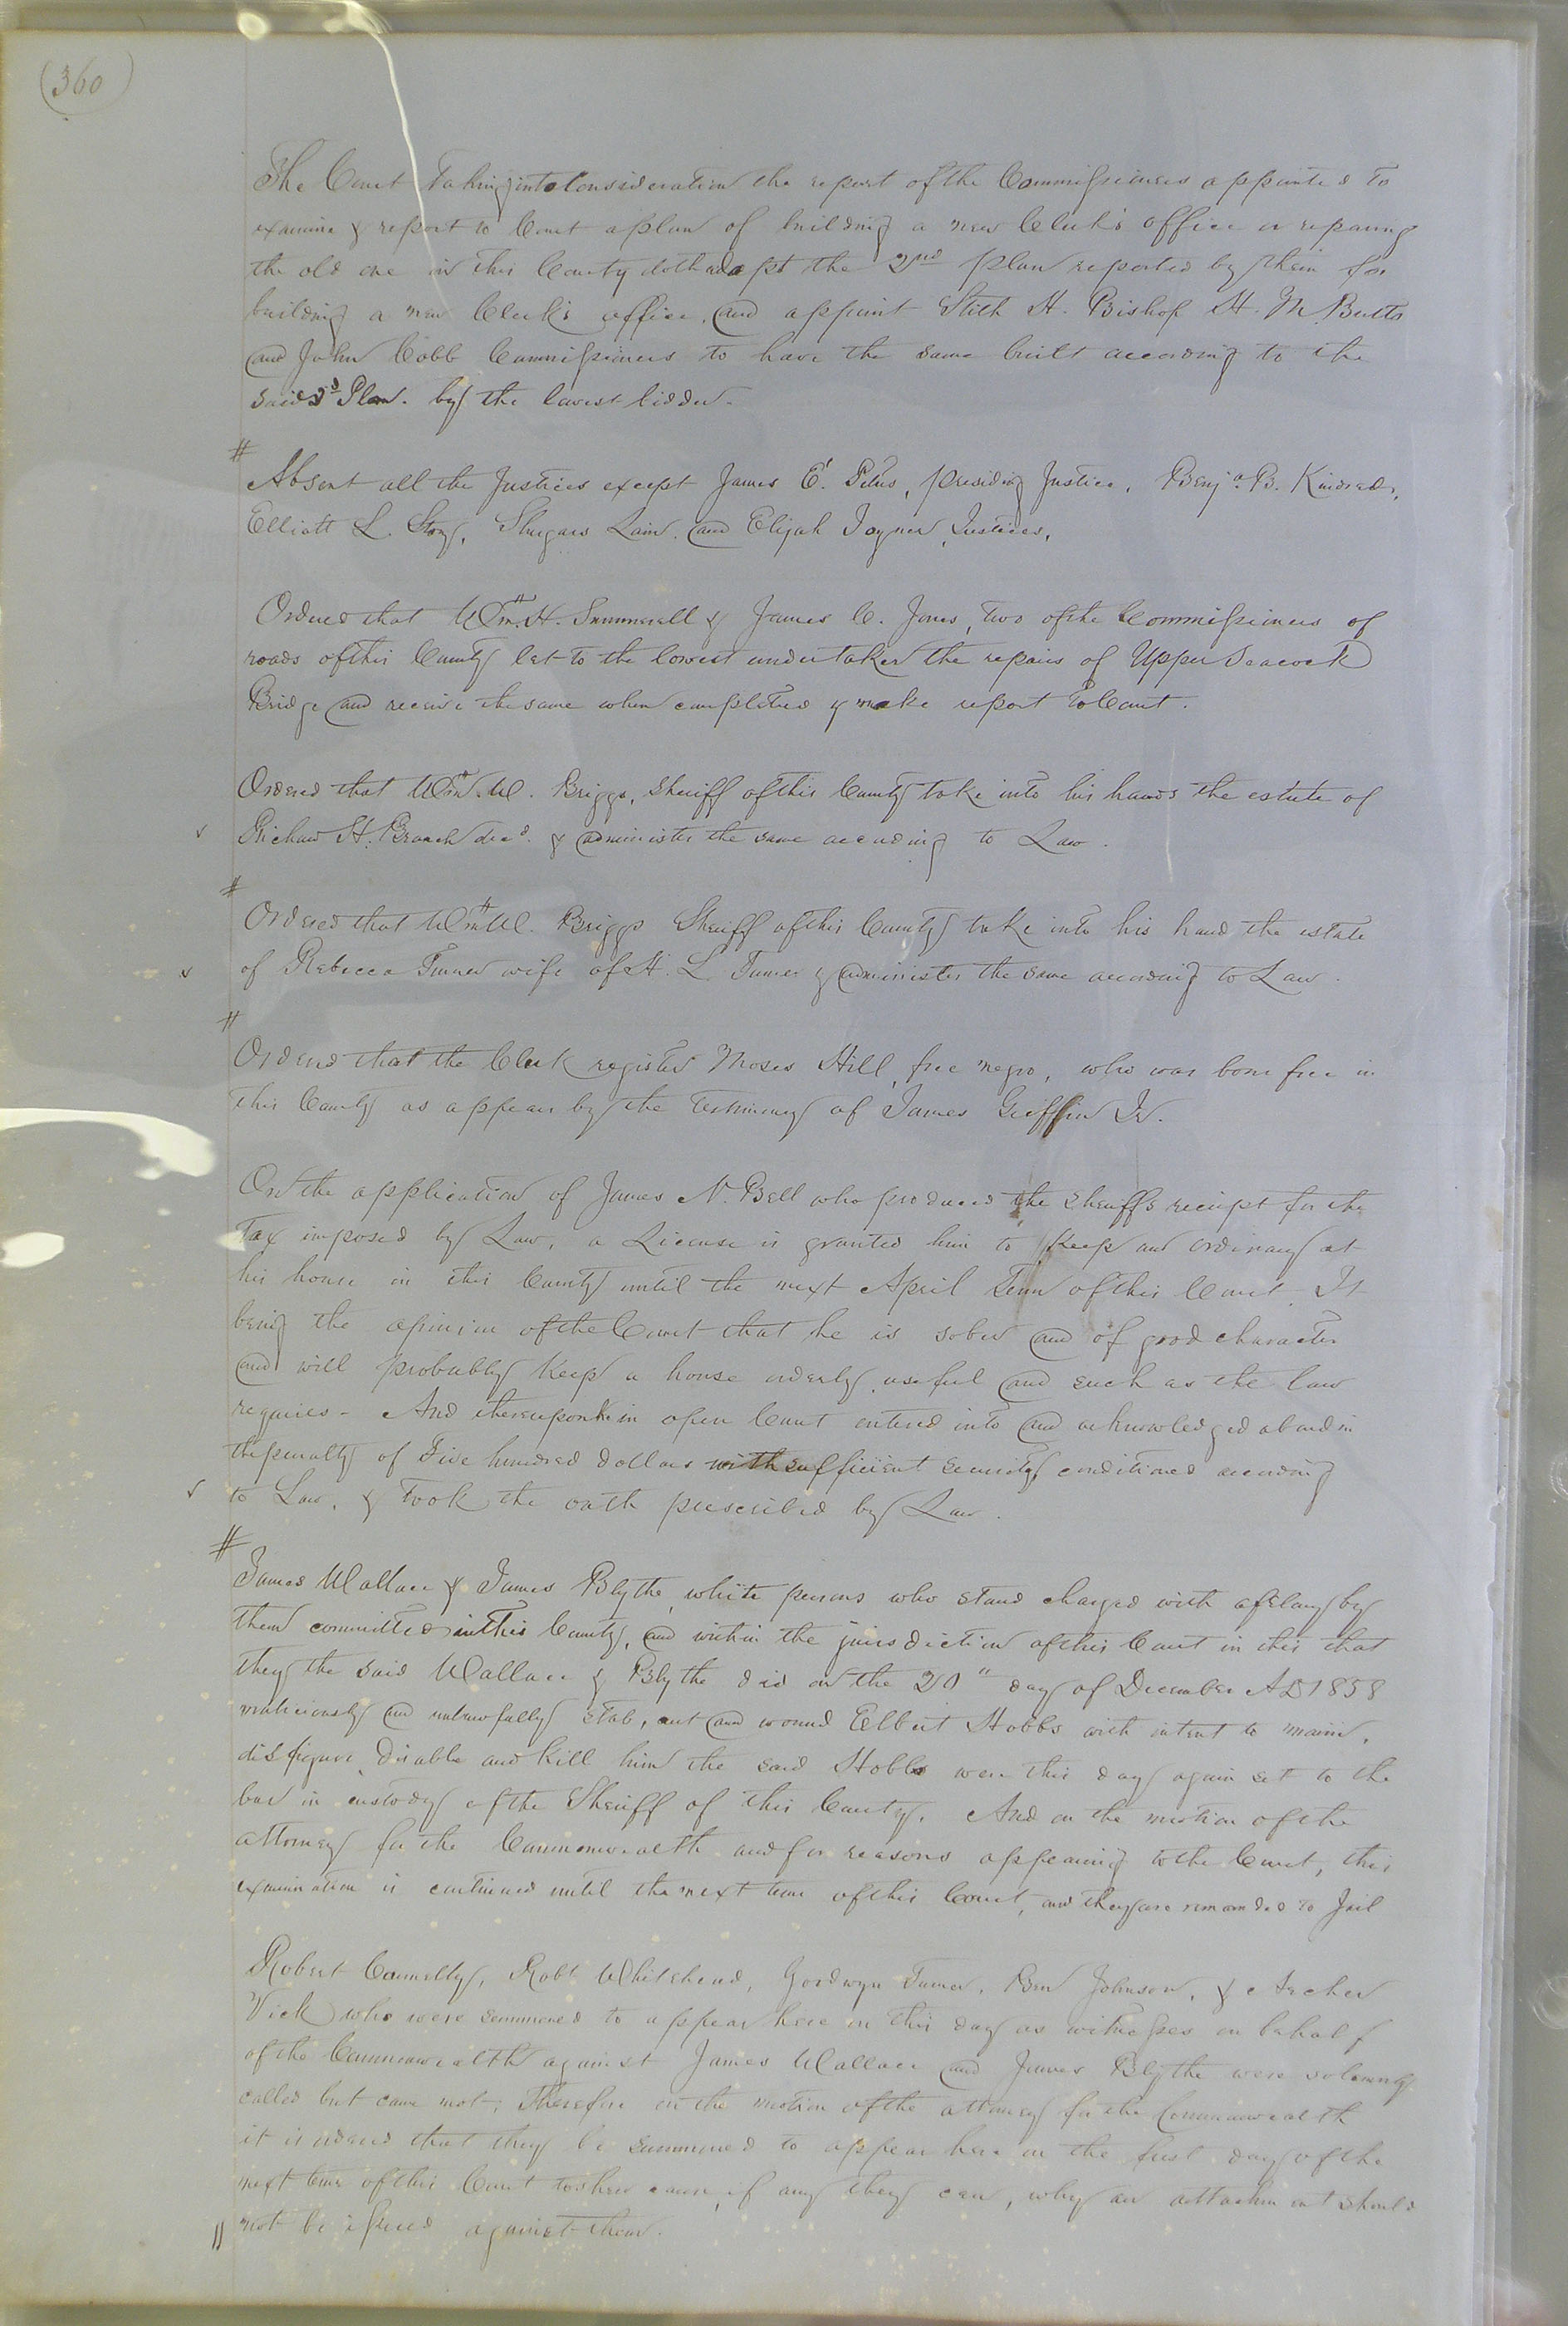 (360)
The Court taking into Consideration the report of the Commissioners appointed to
examine & report to Court a plan of building a new Clerk's office or repairing
the old one in this County doth adopt the 2nd plan reported by them for
building a new Clerk's office, and appoint Stith H. Bishop H. M. Butts
and John Cobb Commissioners to have the same built according to the
said 2d Plan. by the lowest bidder.
#
Absent all the Justices except James E. presiding Justice, Benja. B. Kindred,
Elliott L. Story, Shugars Lain, and Elijah Joyner, Justices,
Ordered that Wm. H. Summerell & James C. Jones, two of the Commissioners of
roads of this County let to the lowest undertaker the repairs of Upper Seacock
Bridge and receive the same when completed & make report to Court.
#
Ordered that Wm. W. Briggs, Sheriff of this County take into his hands the estate of
Richard H. Branch decd. & administer the same according to Law.
#
Ordered that Wm. W. Briggs Sheriff of this County take into his hand the estate
of Rebecca Turner wife of H. L. Turner & administer the same according to Law.
#
Ordered that the Clerk register Moses Hill, free negro, who was born free in
this County as appears by the testimony of James Griffin Jr.
On the application of James N. Bell who produced the sheriff's receipt for the
Tax imposed by Law, a License is granted him to keep an ordinary at
his house in this County until the next April Term of this Court. It
being the opinion of the Court that he is sober and of good character
and will probably keep a house orderly, useful and such as the law
requires - And thereupon he in open Court entered into and acknowledged a bond in
the penalty of Five hundred dollars with sufficient security conditioned according
to Law, & took the oath prescribed by Law.
#
James Wallace & James Blythe, white persons who stand charged with a felony by
them committed in this County, and within the jurisdiction of this Court in this that
they the said Wallace & Blythe did on the 20" day of December AD 1858
maliciously and unlawfully stab, cut and wound Elbert Hobbs with intent to maim,
disfigure, disable and kill him the said Hobbs were this day again set to the
bar in custody of the Sheriff of this County. And on the motion of the
attorney for the Commonwealth and for reasons appearing to the Court, this
examination is continued until the next term of this Court, and they are remanded to Jail
Robert Connelly, Robt Whitehead, Goodwyn Turner, Ben Johnson, & Archer
Vick who were summoned to appear here on this day as witnesses on behalf
of the Commonwealth against James Wallace and James Blythe were solemnly
called but came not; Therefore on the motion of the attorney for the Commonwealth
it is ordered that they be summoned to appear here on the first day of the
next term of this Court to shew cause, if any they can, why an attachment should
not be issued against them.